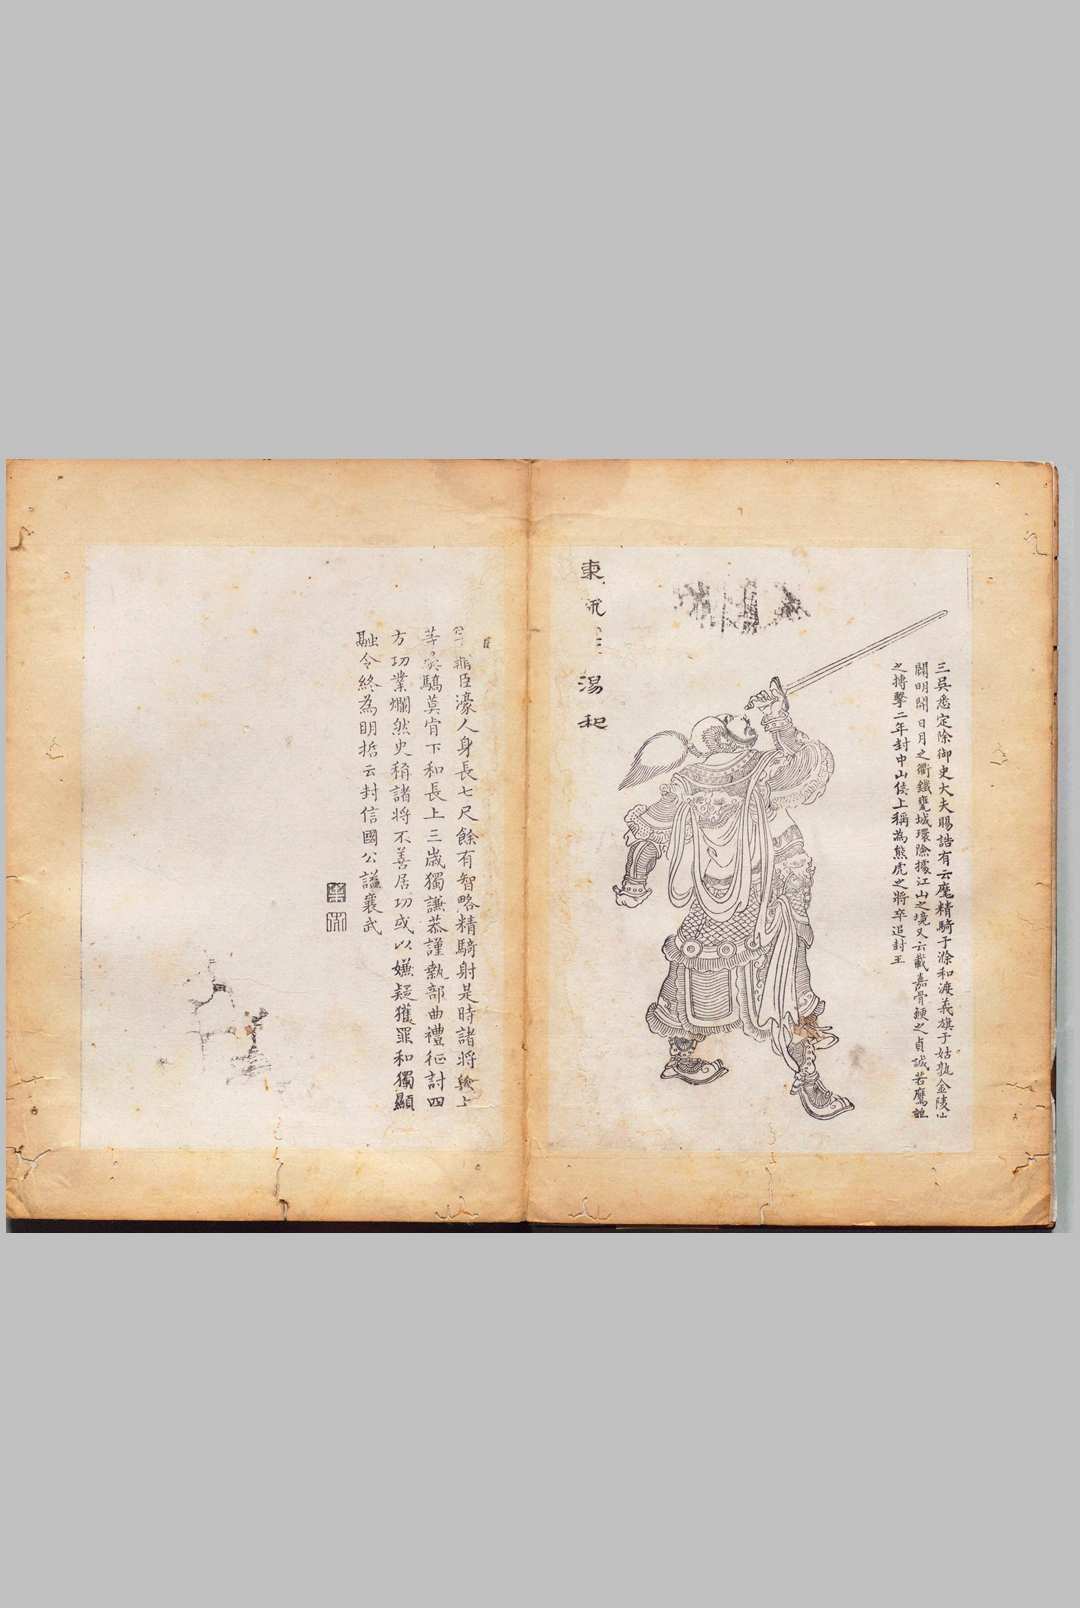 東甌王湯和
三吳悉定除御史大夫賜誥有云麾精騎于滁和渡義旗于姑孰金陵山
開明開日月之衢鐵甕城環險據江山之境又云載嘉骨鯁之貞誠若鷹
之搏擊二年封中山侯上稱為熊虎之將卒追封王
鼎臣濠人身長七尺餘有智略精騎射是時諸將與上
等夷驕莫肯下和長上三歲獨謙恭謹執部曲禮征討四
方功業爛然史稱諸將不善居功或以嫌疑獲罪和獨顯
融令終為明哲云封信國公謚襄武